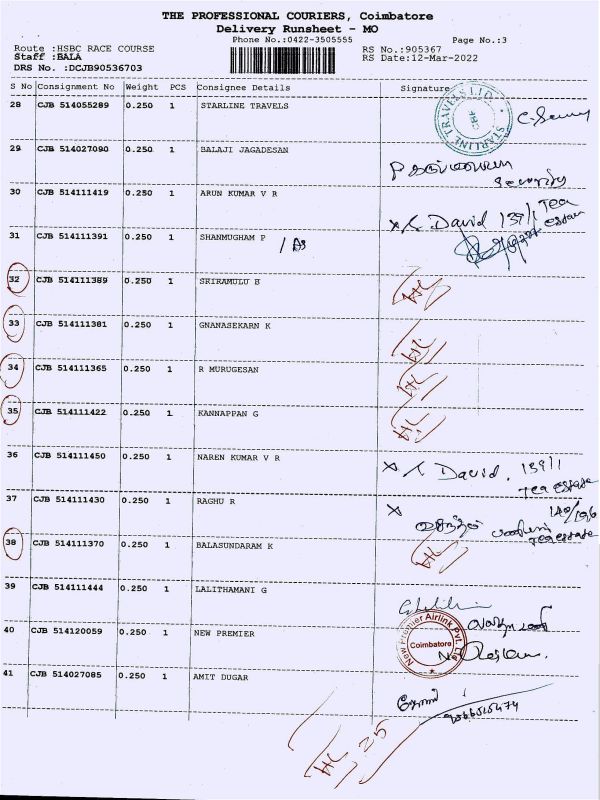 THE PROFESSIONAL COURIERS, Coimbatore
Delivery Runsheet - MO
Phone No.:0422-3505555
Page No.:3
Route :HSBC RACE COURSE
RS No.:905367
Staff :BALA
RS Date:12-Mar-2022
DRS No. :DCJB90536703
S No Consignment No Weight PCS Consignee Details Signature
28 CJB 514055289 0.250 1 STARLINE TRAVELS
STARLINE TRAVELS LTD CBE
29 CJB 514027090 0.250 1 BALAJI JAGADESAN
Security
30 CJB 514111419 0.250 1 ARUN KUMAR V R
David 139/1 Tea
Estate
31 CJB 514111391 0.250 1 SHANMUGHAM P
32 CJB 514111389 0.250 1 SRIRAMULU B
33 CJB 514111381 0.250 1 GNANASEKARN K
34 CJB 514111365 0.250 1 R MURUGESAN
35 CJB 514111422 0.250 1 KANNAPPAN G
36 CJB 514111450 0.250 1 NAREN KUMAR V R
David. 139/1
Tea Estate
37 CJB 514111430 0.250 1 RAGHU R
Tea estate
38 CJB 514111370 0.250 1 BALASUNDARAM K
39 CJB 514111444 0.250 1 LALITHAMANI G
40 CJB 514120059 0.250 1 NEW PREMIER
New Premier Airlink Pvt. Ltd. Coimbatore
41 CJB 514027085 0.250 1 AMIT DUGAR
25